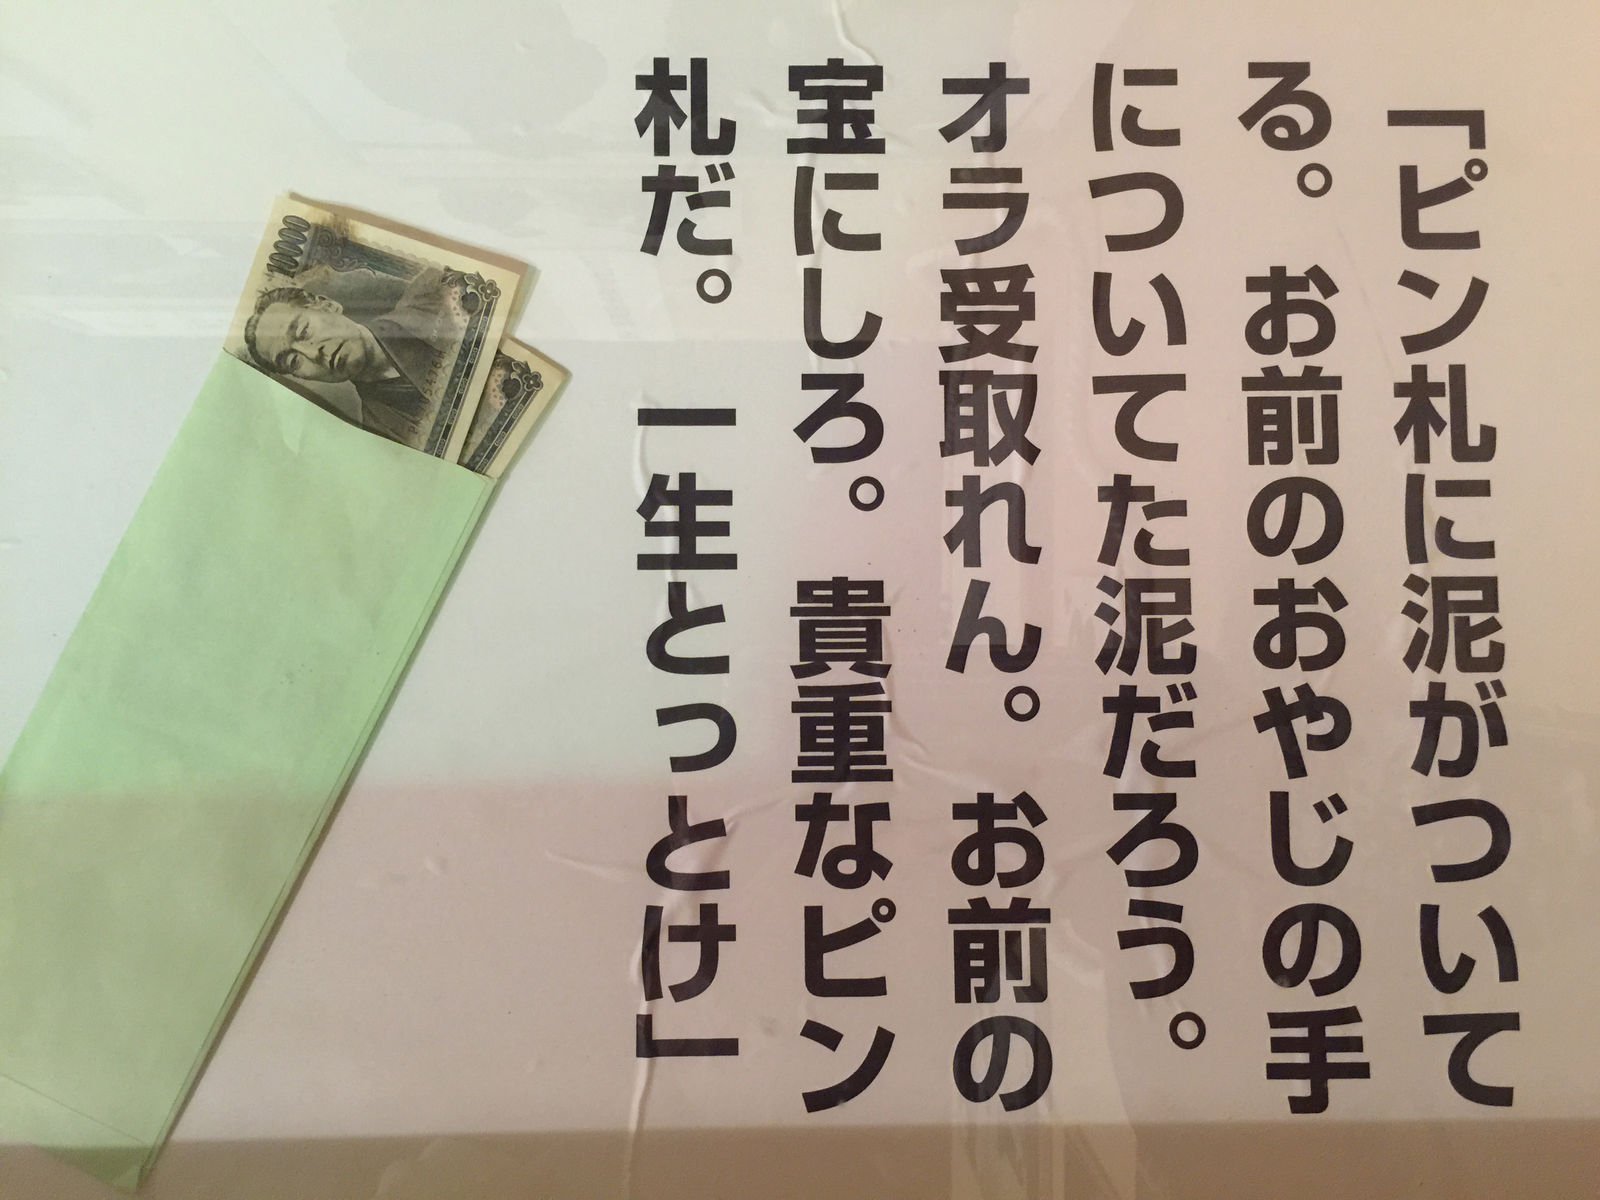 「ピン札に泥がついて
る。お前のおやじの手
についてた泥だろう。
オラ受取れん。お前の
宝にしろ。貴重なピン
札だ。一生とっとけ」
10000